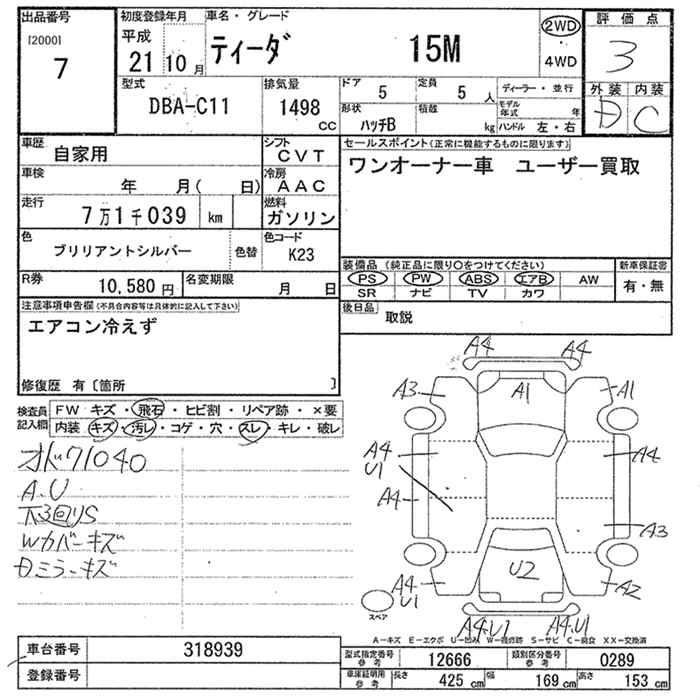 出品番号
[2000]
7
初度登録年月
平成
21 10 月
車名・グレード
ティーダ 15M
2WD
4WD
評価点
3
外装 内装
D C
型式
DBA-C11
排気量
1498 CC
ドア
5
定員
5 人
形状
ハッチB
積載
kg
ディーラー・並行
モデル年式 年
ハンドル 左・右
車歴
自家用
シフト
CVT
車検
年 月( 日)
冷房
AAC
走行
7万1千039 km
燃料
ガソリン
色
ブリリアントシルバー
色替
色コード
K23
R券
10,580 円
名変期限
月 日
セールスポイント(正常に機能するものに限ります)
ワンオーナー車 ユーザー買取
装備品 (純正品に限り○をつけてください)
PS PW ABS エアB AW
SR ナビ TV カワ
新車保証書
有・無
後日品
取説
注意事項申告欄(不具合内容等は具体的に記入して下さい)
エアコン冷えず
修復歴 有〔箇所 〕
検査員記入欄
FW キズ・飛石・ヒビ割・リペア跡・×要
内装 キズ・汚レ・コゲ・穴・スレ・キレ・破レ
71040
A.U
下3回リS
Wカバーキズ
Dミラーキズ
A4 A4
A3 A1 A1
A4 U1 A4
A4 A3
A4 U1 U2 A2
スペア
A4.U1 A4.U1
A-キズ E-エクボ U-凹み W-補修跡 S-サビ C-腐食 XX-交換済
車台番号
318939
登録番号
型式指定番号 参考
12666
類別区分番号 参考
0289
車庫証明用 参考
長さ 425 cm 幅 169 cm 高さ 153 cm